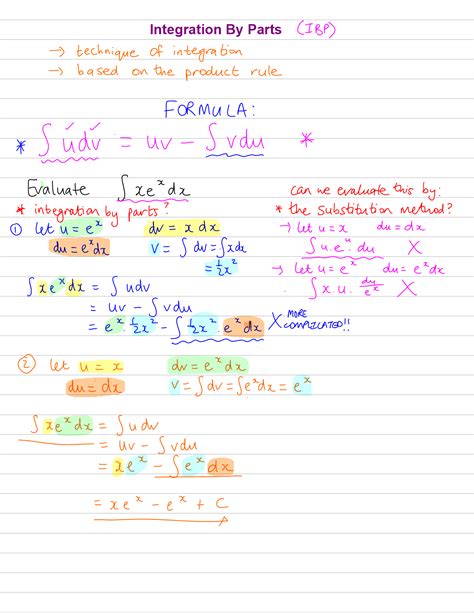 Integration By Parts (IBP)
→ technique of integration
→ based on the product rule
FORMULA:
* ∫ u dv = uv - ∫ v du *
Evaluate ∫ xe^x dx
* integration by parts?
① let u = e^x dv = x dx
du = e^x dx v = ∫ dv = ∫ x dx
= ½x²
∫ xe^x dx = ∫ u dv
= uv - ∫ v du
= e^x · ½x² - ∫ ½x² · e^x dx X MORE COMPLICATED!!
can we evaluate this by:
* the substitution method?
→ let u = x du = dx
∫ u · e^u du X
→ let u = e^x du = e^x dx
∫ x · u · du/e^x X
② let u = x dv = e^x dx
du = dx v = ∫ dv = ∫ e^x dx = e^x
∫ xe^x dx = ∫ u dv
= uv - ∫ v du
= xe^x - ∫ e^x dx
= xe^x - e^x + C